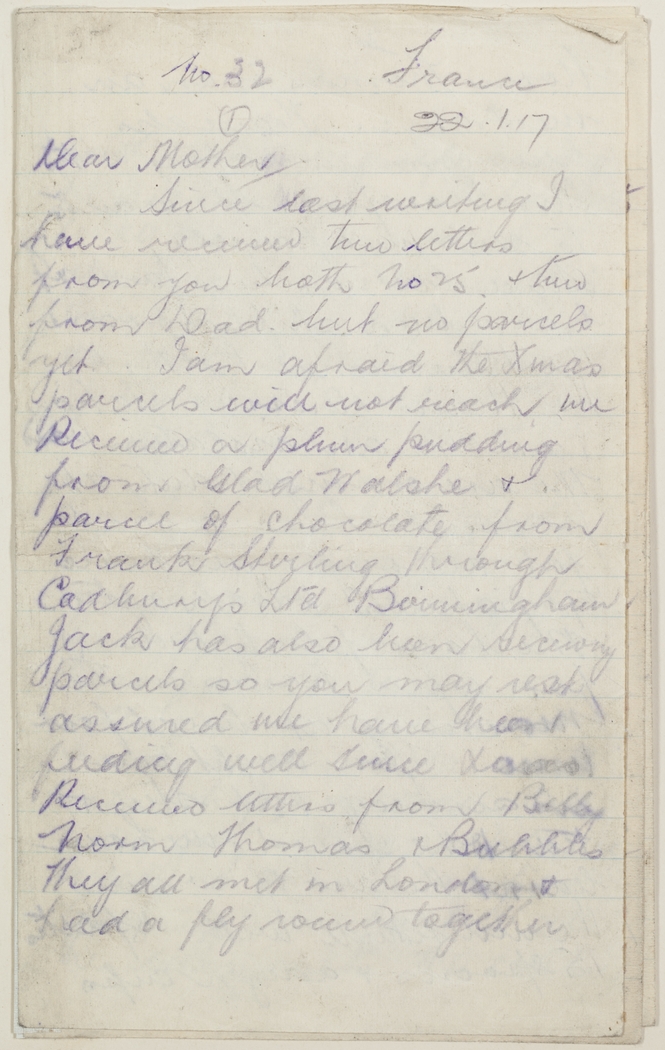 No. 32 France
(1) 22.1.17
Dear Mother,
Since last writing I
have received two letters
from you both No 25 & two
from Dad. but no parcels
yet. I am afraid the Xmas
parcels will not reach me
Received a plum pudding
from Glad Walshe &
parcel of chocolate from
Frank Stirling through
Cadburys Ltd Birmingham
Jack has also been receiving
parcels so you may rest
assured we have been
feeding well since Xmas
Received letters from Billy
Norm Thomas & Bubbles
they all met in London &
had a fly round together